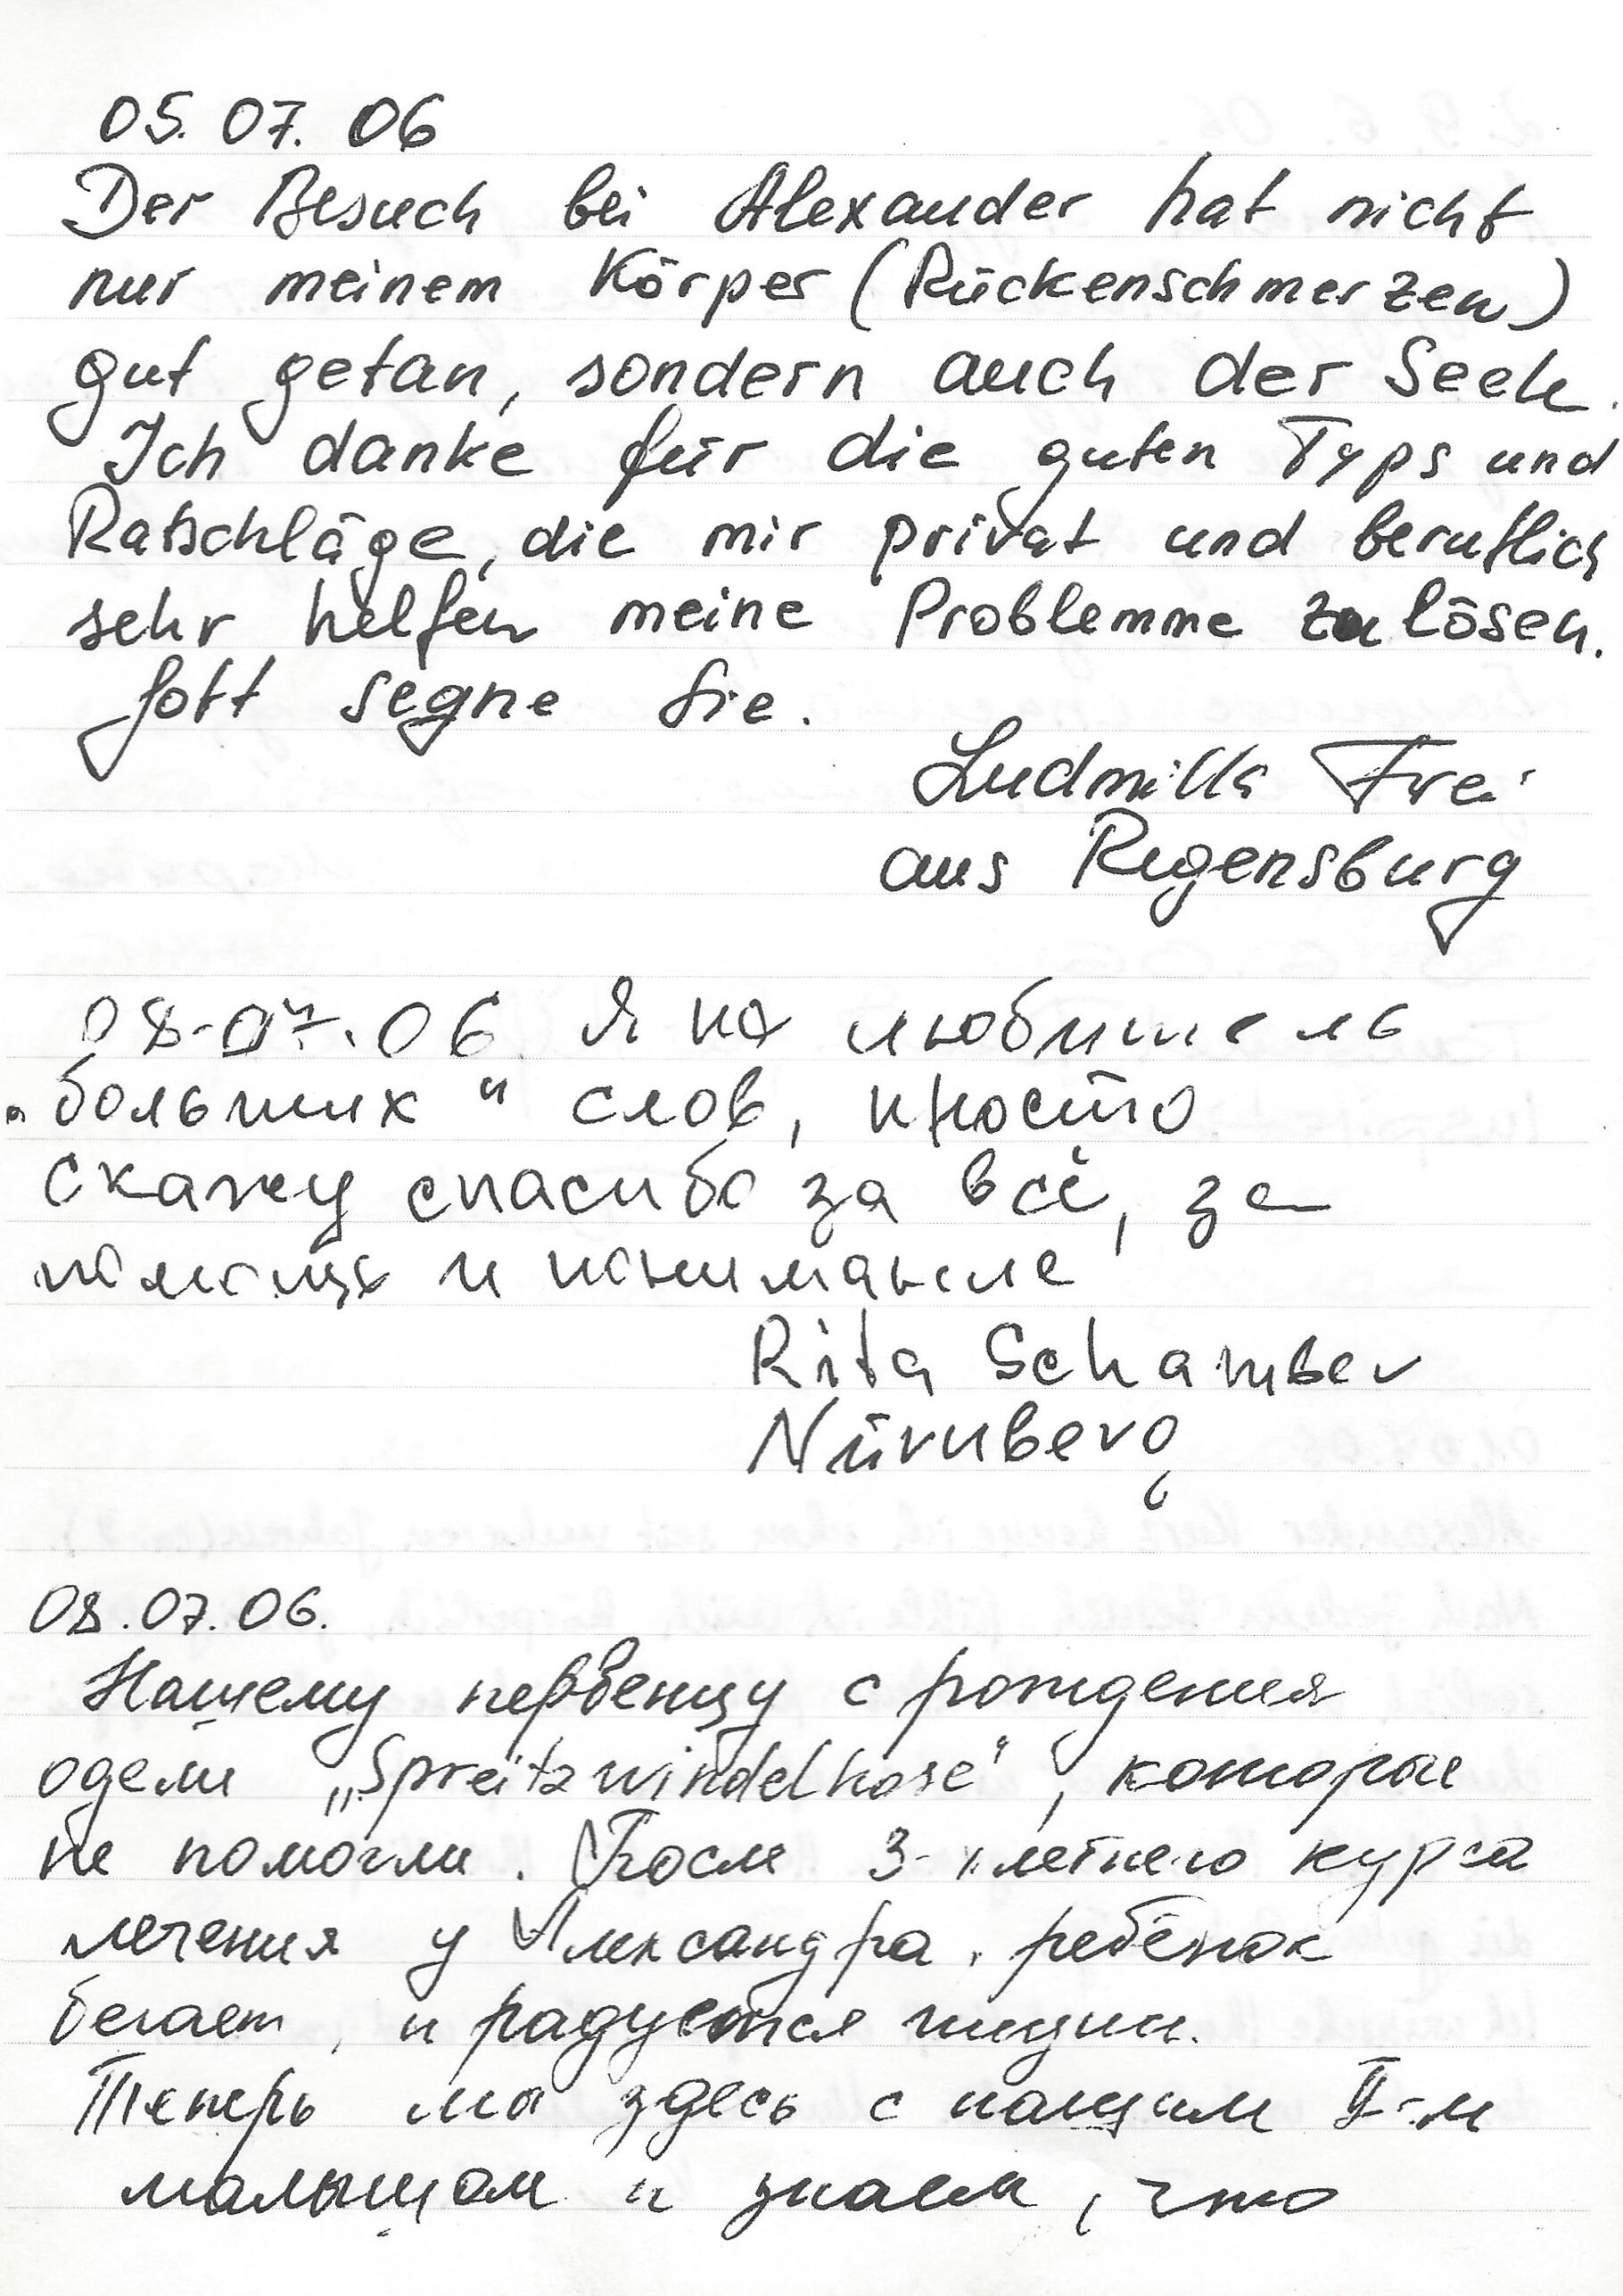 05.07.06
Der Besuch bei Alexander hat nicht
nur meinem Körper (Rückenschmerzen)
gut getan, sondern auch der Seele.
Ich danke für die guten Typs und
Ratschläge, die mir privat und beruflich
sehr helfen meine Problemme zu lösen.
Gott segne Sie.
Ludmilla Frei
aus Regensburg
08.07.06. Я не любитель
„больших" слов, просто
скажу спасибо за всё, за
помощь и понимание
Rita Schamber
Nürnberg
08.07.06.
Нашему первенцу с рождения
одели „Spreitzwindelhose", которые
не помогли. После 3-хлетнего курса
лечения у Александра, ребёнок
бегает, и радуется жизни.
Теперь мы здесь с нашим II-м
малышом и знаем, что